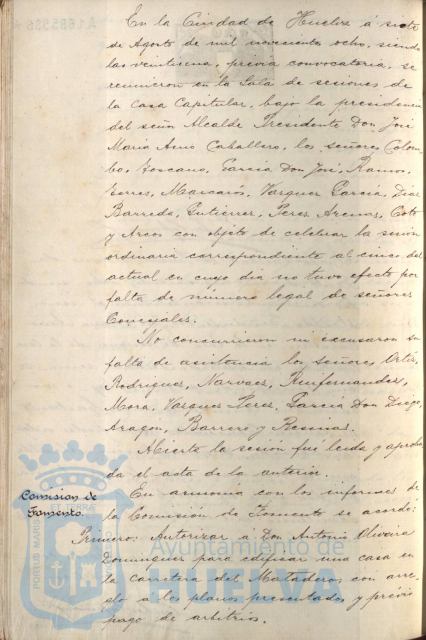 En la Ciudad de Huelva á siete
de Agosto de mil novecientos ocho, siendo
las veintiuna, prévia convocatoria, se
reunieron en la Sala de sesiones de
la Casa Capitular, bajo la presidencia
del señor Alcalde Presidente Don José
Maria Caballero, los señores Colom-
bo, Toscano, Garcia Don José, Ramos,
Torres, Mascarós, Vazquez Garcia, Diaz
Barreda, Gutierrez, Perez Arenas, Coto
y Arcos con objeto de celebrar la sesión
ordinaria correspondiente al cinco del
actual en cuyo dia no tuvo efecto por
falta de número legal de señores
Concejales.
No concurrieron ni excusaron su
falta de asistencia los señores Ortiz,
Rodriguez, Narvaez, Ruifernandez,
Mora, Vazquez Perez, Garcia Don Diego,
Aragon, Barrero y
Abierta la sesión fué leida y aproba-
da el acta de la anterior.
Comision de
Fomento.
En armonia con los informes de
la Comisión de Fomento se acordó:
Primero: Autorizar a Don Antonio Oliveira
Dominguez para edificar una casa en
la carretera del Matadero, con arre-
glo a los planos presentados y prévio
pago de arbitrios.
Ayuntamiento de
PORTUS MARIS